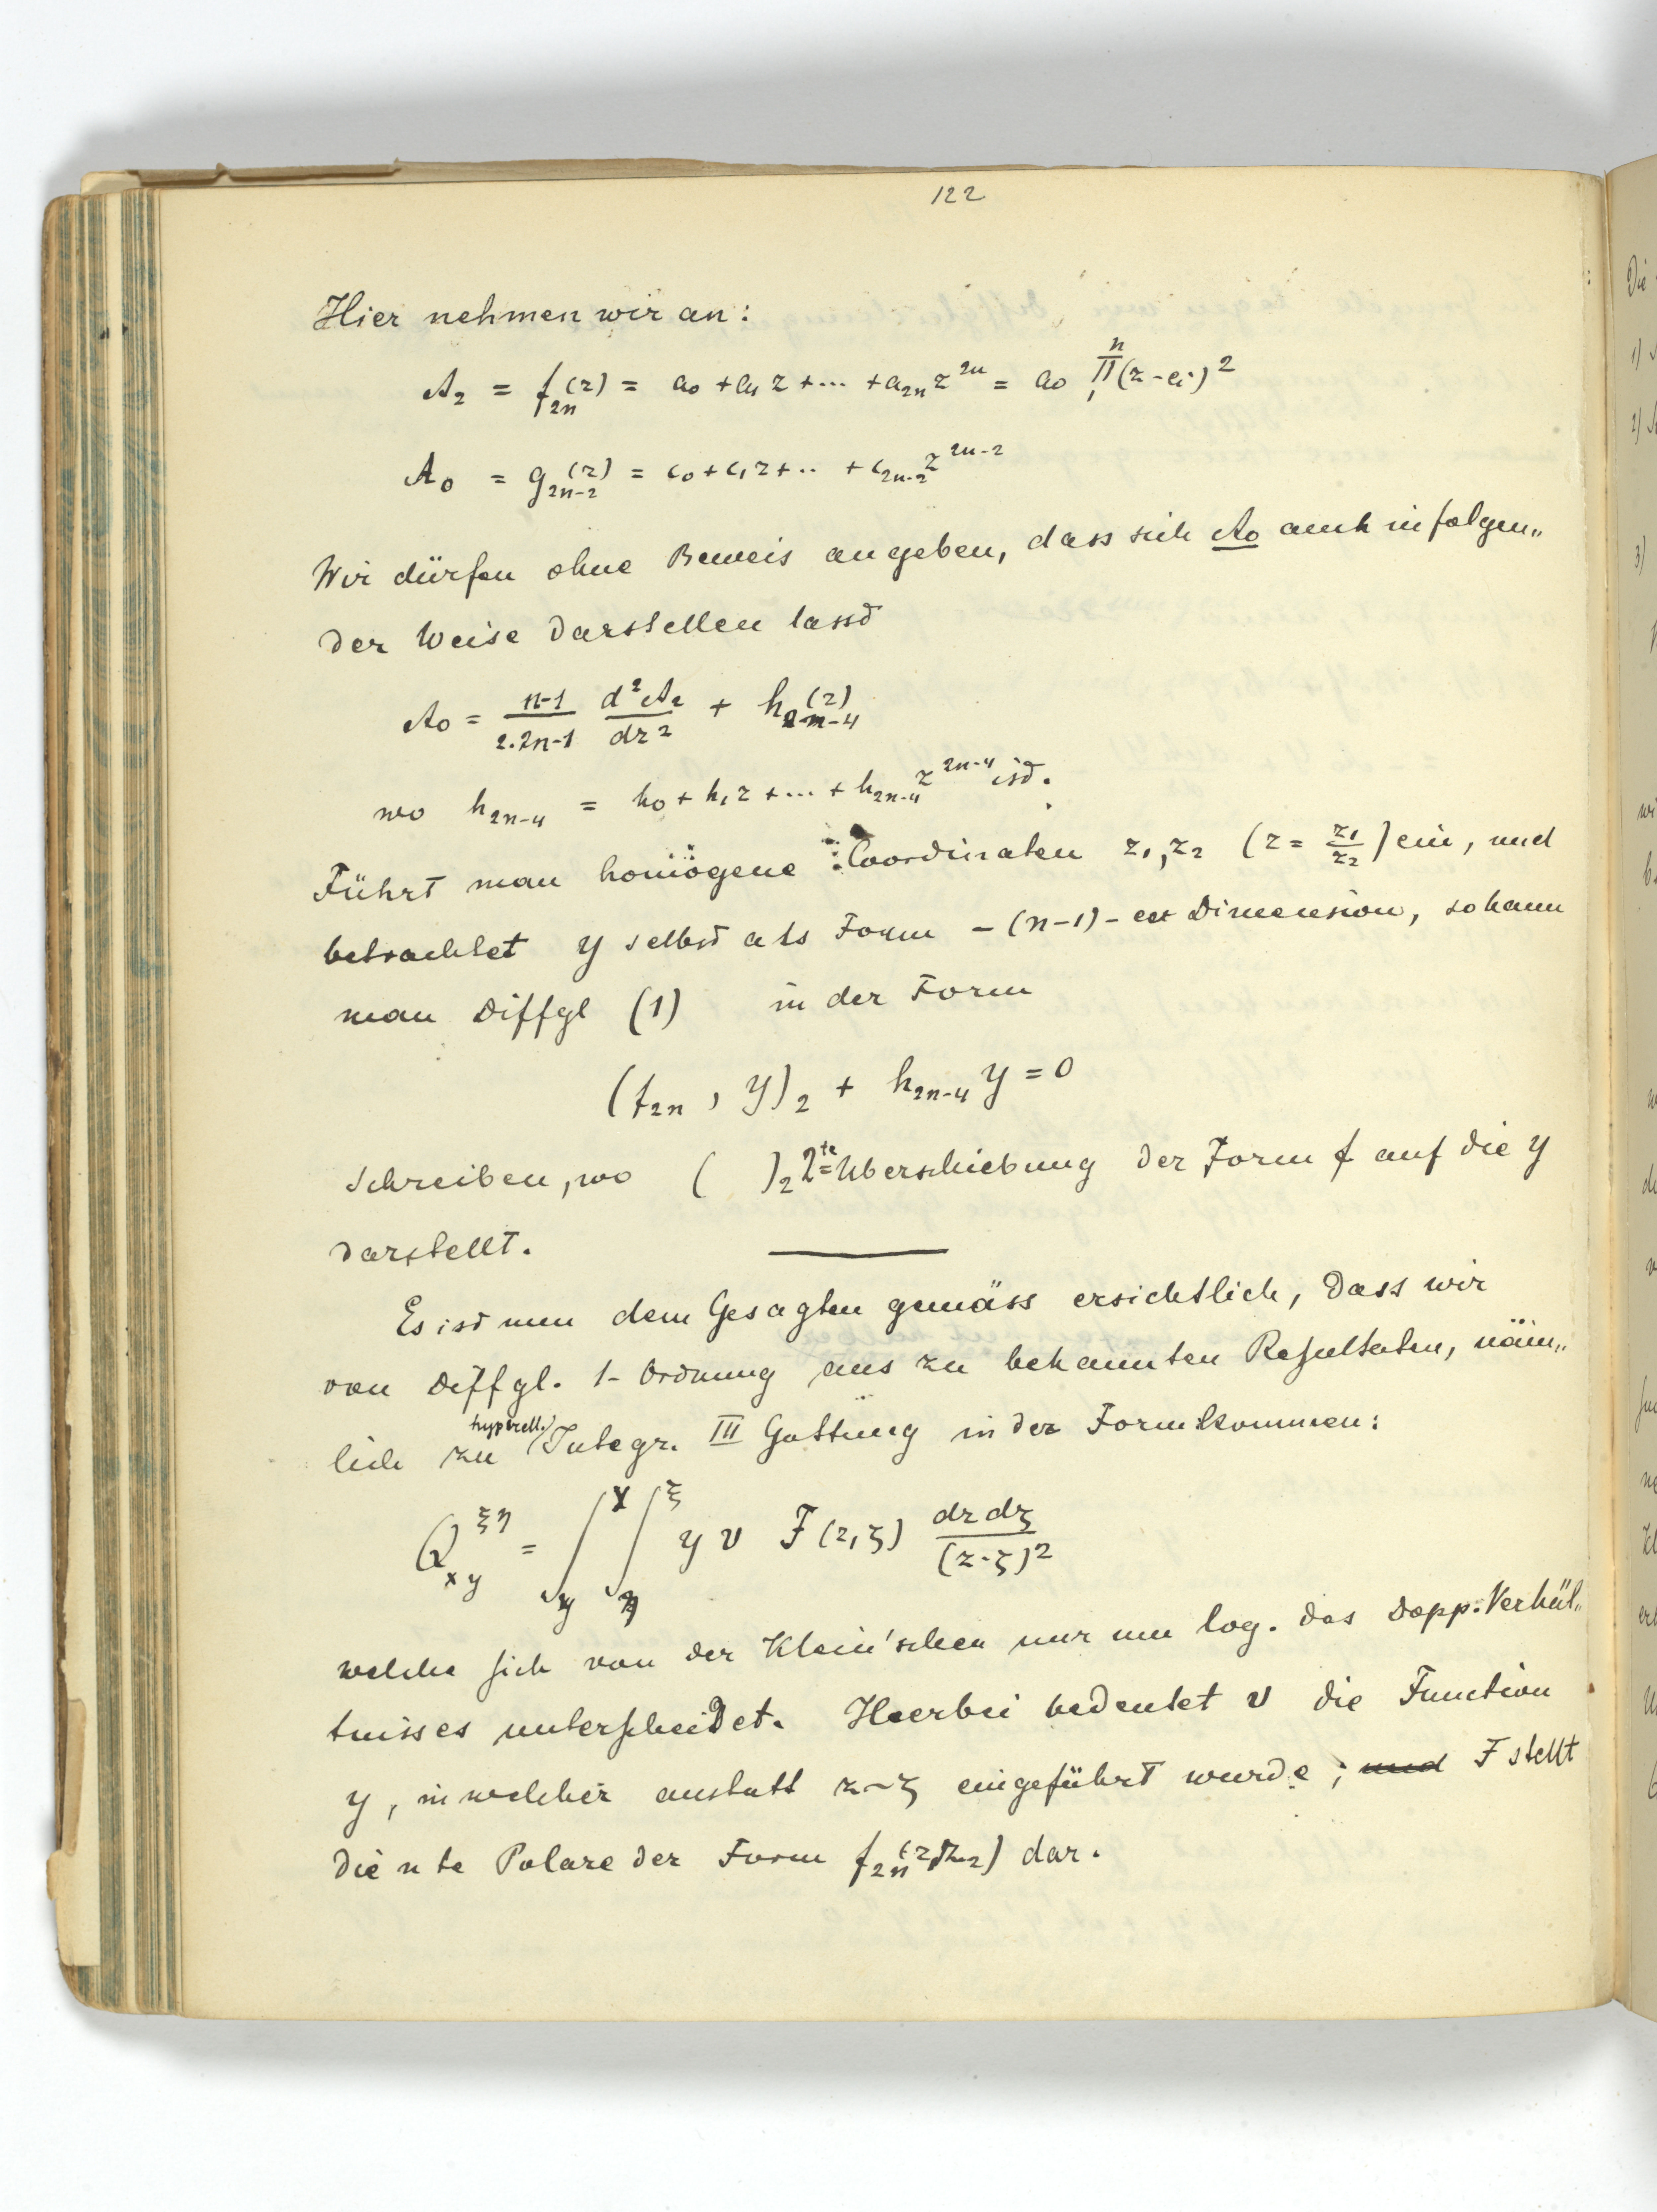 122
Hier nehmen wir an:
A₂ = f₂ₙ(z) = a₀ + a₁ z + ... + a₂ₙ z²ⁿ = a₀ ∏₁ⁿ (z - eᵢ)²
A₀ = g₂ₙ₋₂(z) = c₀ + c₁ z + .. + c₂ₙ₋₂ z²ⁿ⁻²
Wir dürfen ohne Beweis angeben, dass sich A₀ auch in folgen„
der Weise darstellen lasst
A₀ = (n-1)/(2.2n-1) d²A₂/dz² + h₂ₙ₋₄(z)
wo h₂ₙ₋₄ = h₀ + h₁ z + ... + h₂ₙ₋₄ z²ⁿ⁻⁴ ist.
Führt man homogene Coordinaten z₁, z₂ (z = z₁/z₂) ein, und
betrachtet y selbst als Form - (n-1) - er Dimension, so kann
man Diffgl (1) in der Form
(f₂ₙ , y)₂ + h₂ₙ₋₄ y = 0
schreiben, wo ( )₂ 2te Uberschiebung der Form f auf die y
darstellt.
Es ist nun dem Gesagten gemäss ersichtlich, dass wir
von Diffgl. 1- Ordnung aus zu bekannten Resultaten, näm„
lich zu hyperell. Integr. III Gattung in der Form kommen:
Q^{ξη}_{xy} = ∫_y^x ∫_η^ξ y v F(z,ζ) dz dζ/(z-ζ)²
welche sich von der Klein'schen nur um log. das Dopp. Verhäl„
tnisses unterscheidet. Hierbei bedeutet v die Function
y, in welcher anstatt z ~ ζ eingeführt wurde; und F stellt
die n te Polare der Form f₂ₙ(z₁z₂) dar.